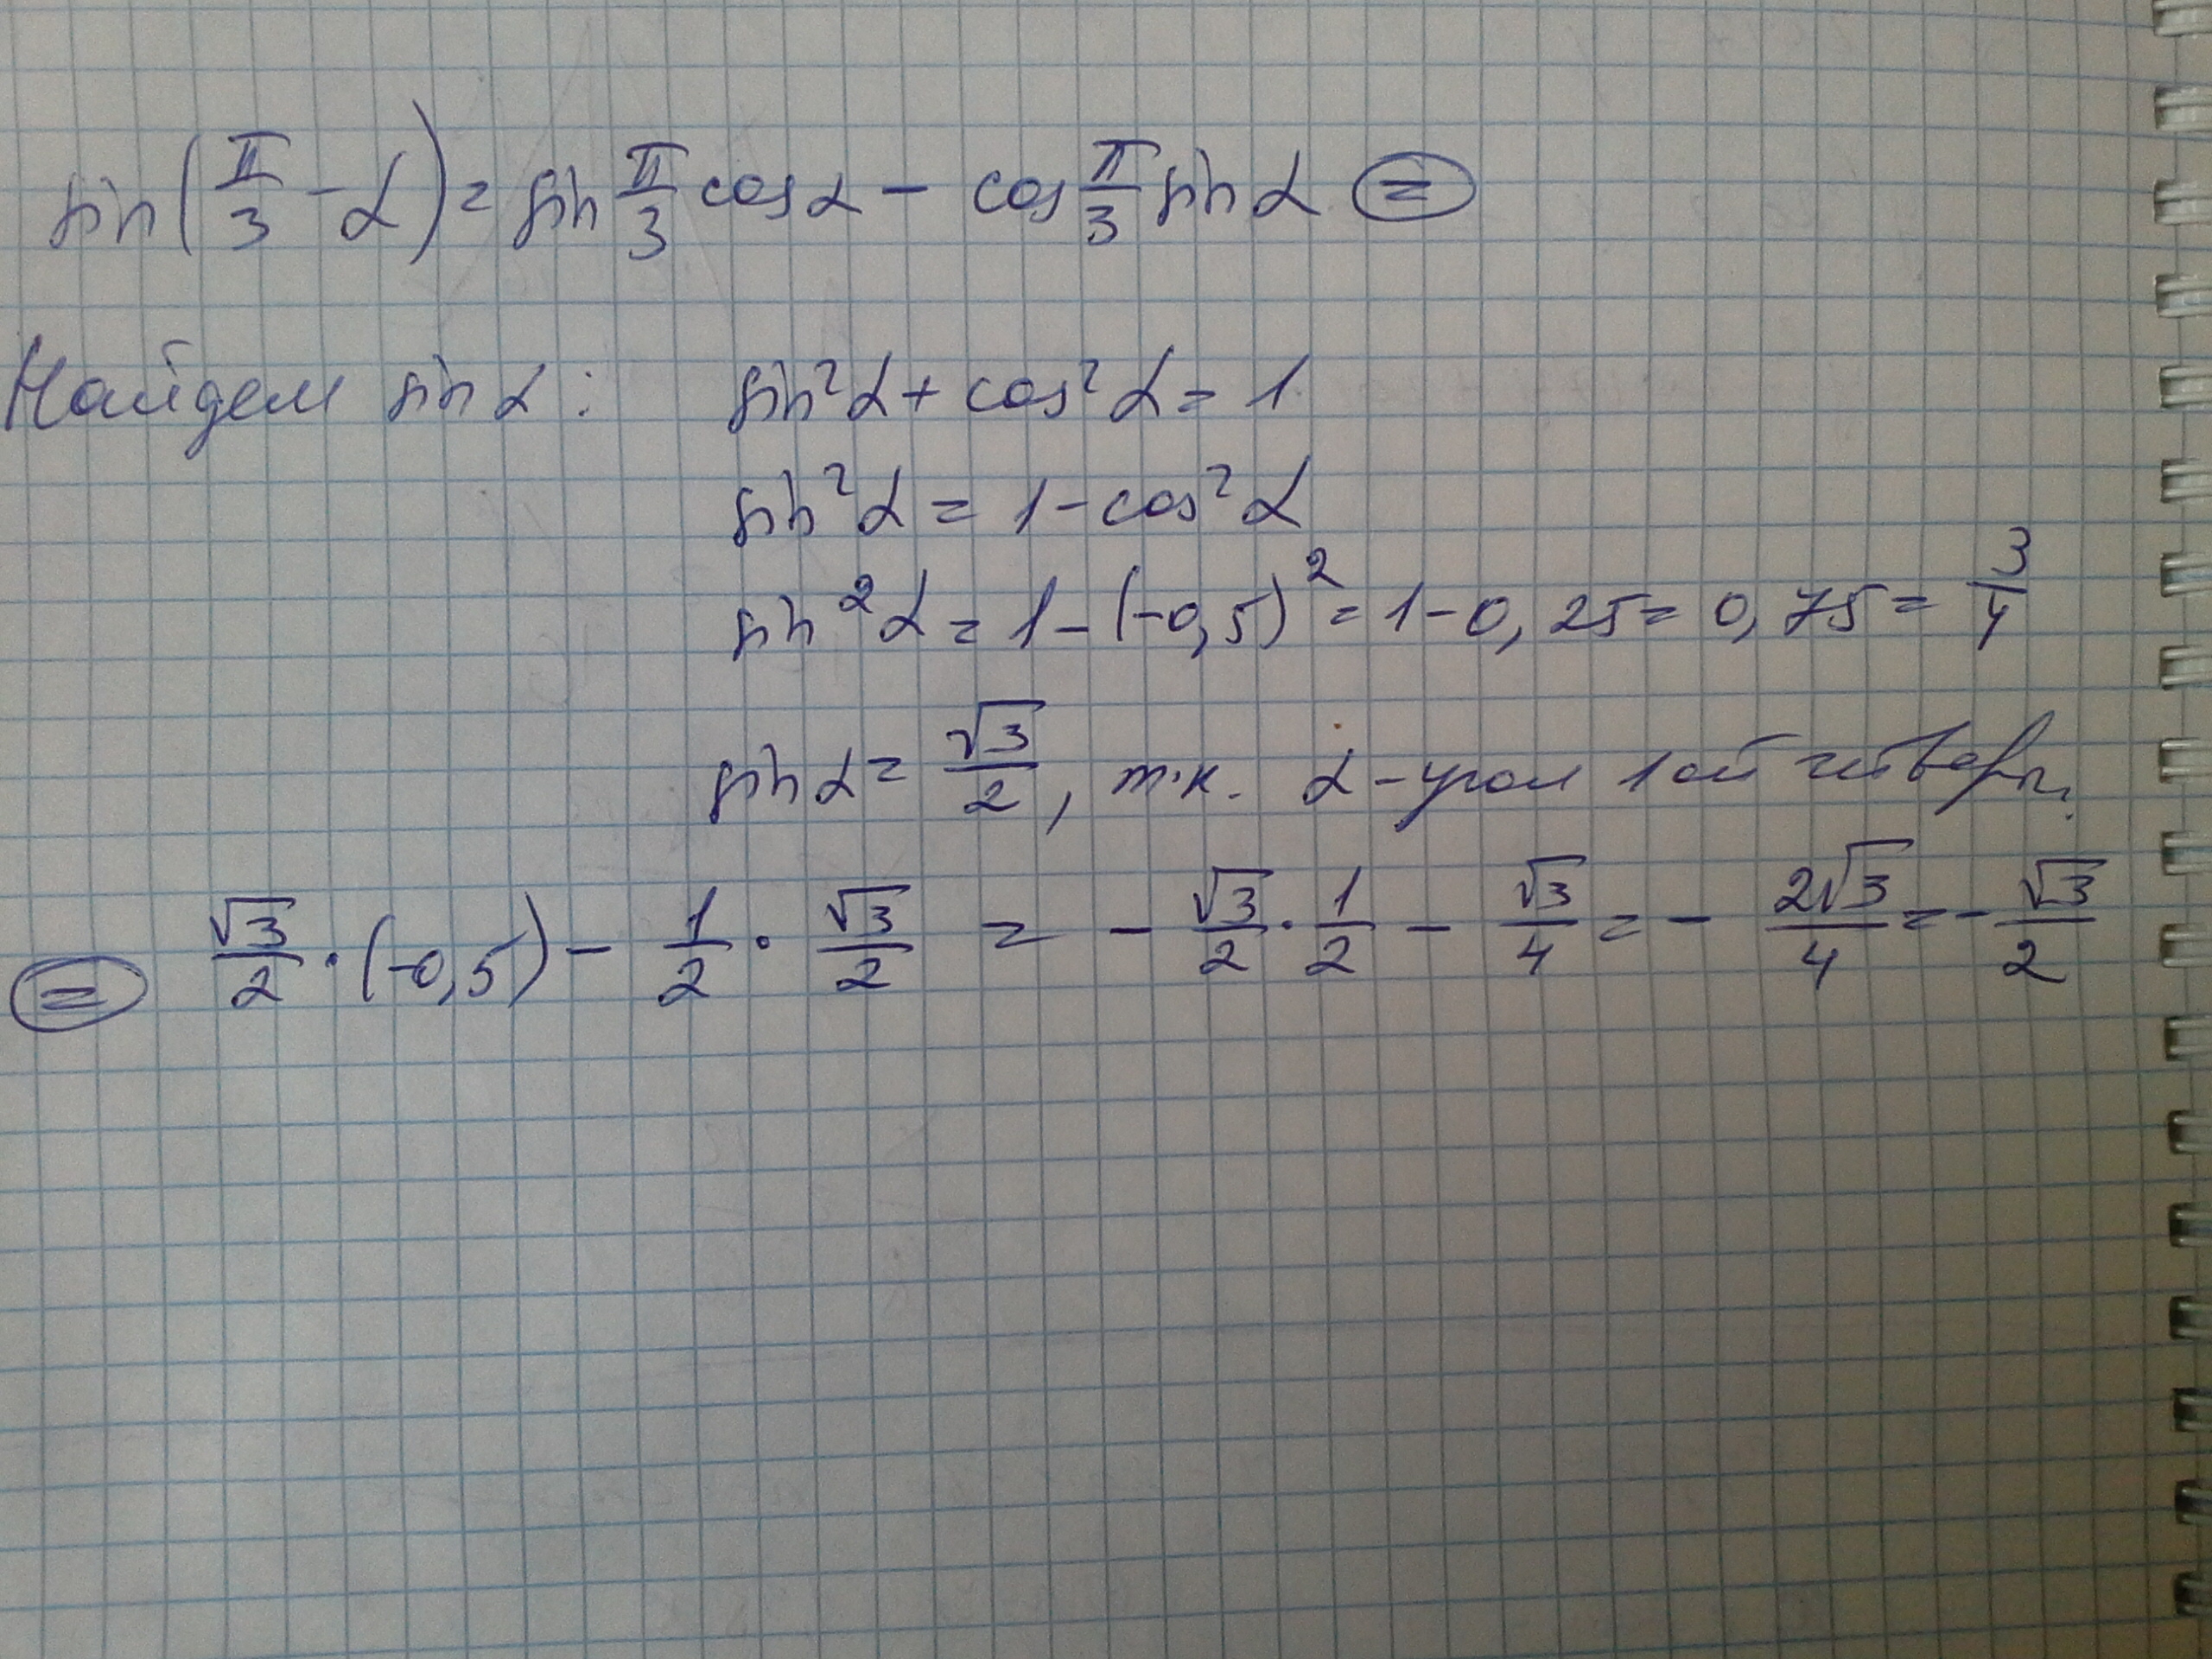 sin(π/3 - α) = sin π/3 cos α - cos π/3 sin α =
Найдем sin α: sin²α + cos²α = 1
sin²α = 1 - cos²α
sin²α = 1 - (-0,5)² = 1 - 0,25 = 0,75 = 3/4
sin α = √3/2, т.к. α - угол 1ой четверти.
= √3/2 · (-0,5) - 1/2 · √3/2 = - √3/2 · 1/2 - √3/4 = - 2√3/4 = - √3/2